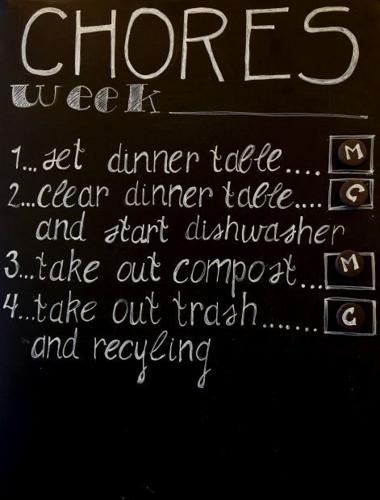 CHORES
week
1...set dinner table.... M
2...clear dinner table.... C
and start dishwasher
3...take out compost... M
4...take out trash....... C
and recyling